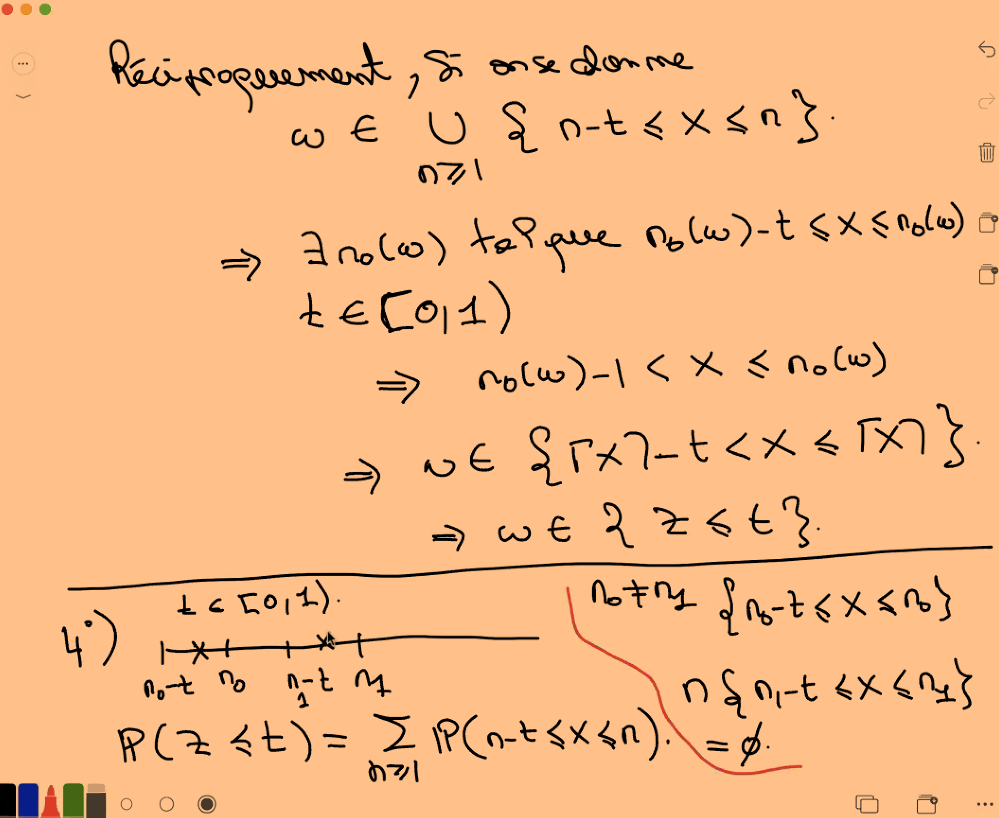 Réciproquement, si on se donne
ω ∈ ∪ { n-t ≤ X ≤ n }.
n≥1
⇒ ∃ n₀(ω) tel que n₀(ω)-t ≤ X ≤ n₀(ω)
t ∈ [0,1)
⇒ n₀(ω)-1 < X ≤ n₀(ω)
⇒ ω ∈ {⌈X⌉-t < X ≤ ⌈X⌉}.
⇒ ω ∈ { Z ≤ t }.
4°) t ∈ [0,1).
n₀-t n₀ n₁-t n₁
P(Z ≤ t) = ∑ P(n-t ≤ X ≤ n).
n≥1
n₀ ≠ n₁ {n₀-t ≤ X ≤ n₀}
∩ {n₁-t ≤ X ≤ n₁}
= ∅.